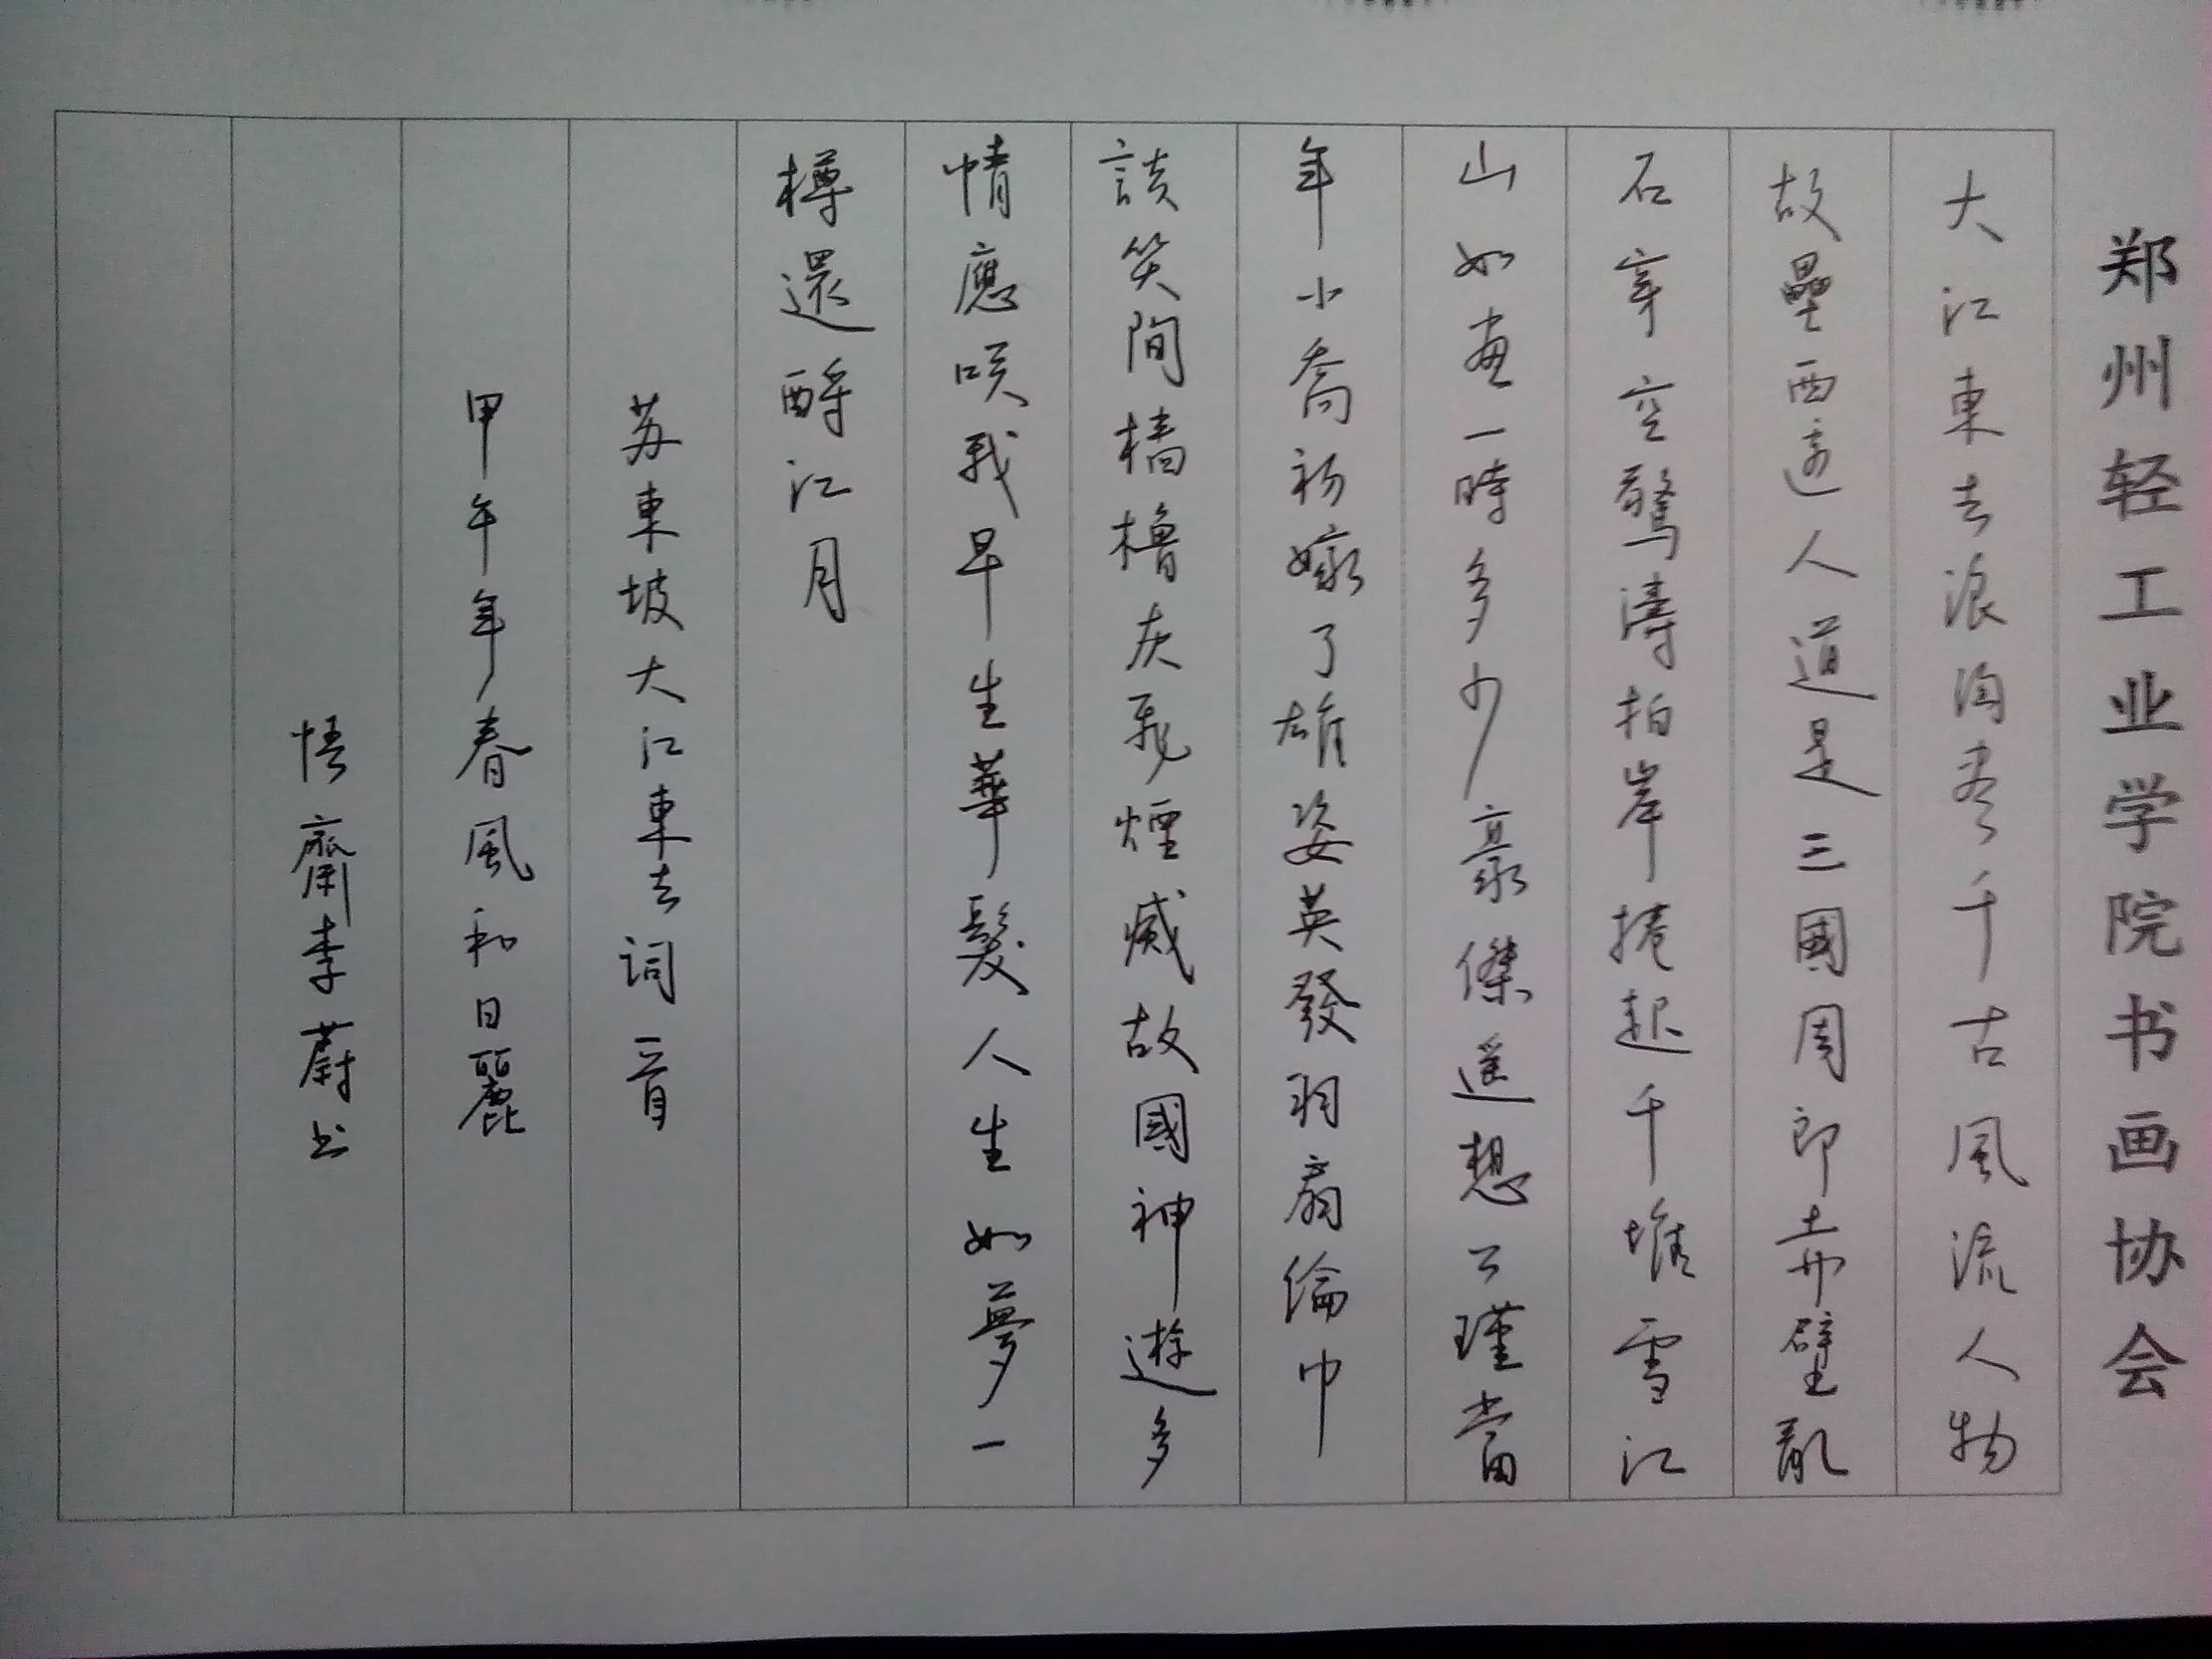 郑州轻工业学院书画协会
大江東去浪淘尽千古風流人物
故壘西邊人道是三國周郎赤壁亂
石穿空驚濤拍岸捲起千堆雪江
山如畫一時多少豪傑遥想公瑾當
年小喬初嫁了雄姿英發羽扇綸巾
談笑間檣櫓灰飛煙滅故國神遊多
情應笑我早生華髮人生如夢一
樽還酹江月
苏東坡大江東去词一首
甲午年春風和日麗
悟齋李蔚书